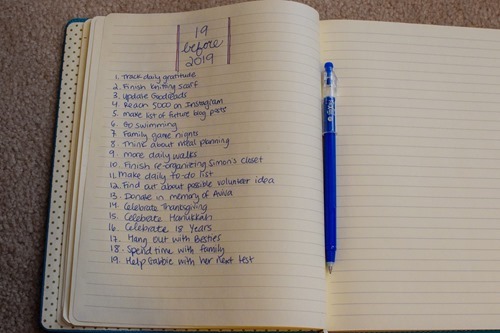 19
before
2019
1. Track daily gratitude
2. Finish knitting scarf
3. Update Goodreads
4. Reach 5000 on Instagram
5. make list of future blog posts
6. Go swimming
7. Family game nights
8. Think about meal planning
9. more daily walks
10. Finish re-organizing Simon's closet
11. Make daily to-do list
12. Find out about possible volunteer idea
13. Donate in memory of Aviva
14. Celebrate Thanksgiving
15. Celebrate Hanukkah
16. Celebrate 18 Years
17. Hang out with Besties
18. Spend time with family
19. Help Gabbie with her next test